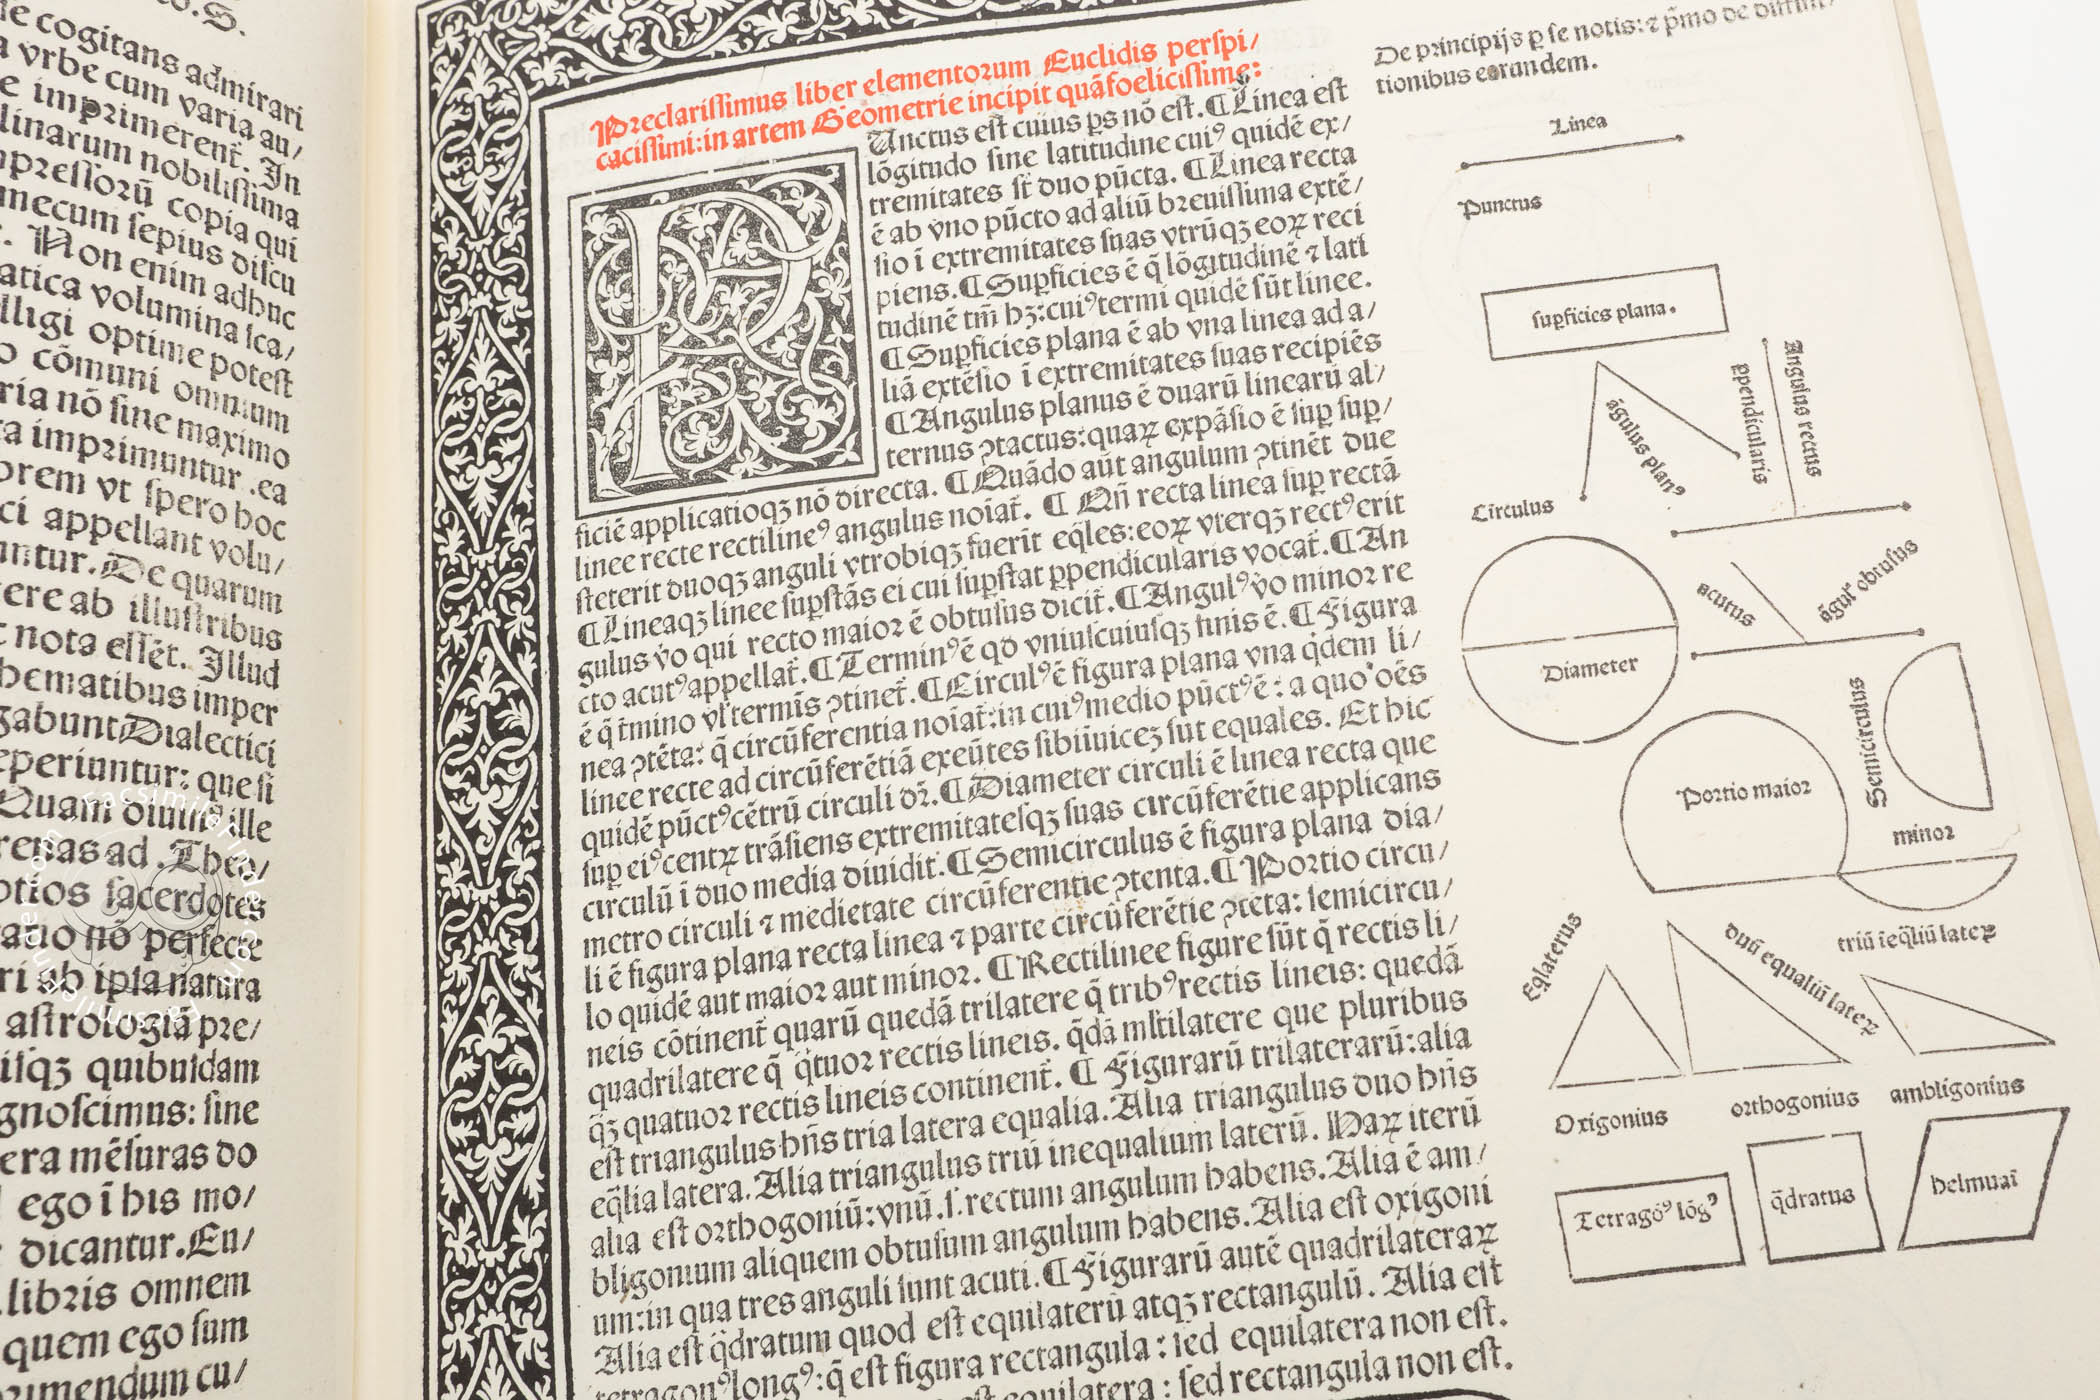 co.S.
ne cogitans admirari
a vrbe cum varia au/
e imprimerent̄. In
linarum nobilissima
mpressorū copia qui
mecum sepius discu
. Non enim adhuc
atica volumina sca/
lligi optime potest
o cōmuni omnium
ria nō sine maximo
ra imprimuntur .ea
orem vt spero hoc
ci appellant volu/
untur. De quarum
ere ab illustribus
t nota essēt. Illud
hematibus imper
gabunt Dialectici
eperiuntur: que si
Quam diuin ille
renas ad . Theo/
otios sacerdotes
ratio nō perfecte
ri ab ipsa natura
astrologiā pre/
isqꝫ quibusdam
gnoscimus: sine
era mēsuras do
ego ī his mo/
dicantur. Eu/
libris omnem
quem ego sum
orimendum cu/
Preclarissimus liber elementorum Euclidis perspi/
cacissimi: in artem Geometrie incipit quāfoelicissime:
Unctus est cuius ꝑs nō est. ¶ Linea est
lōgitudo sine latitudine cuiꝰ quidē ex/
tremitates st̄ duo pūcta. ¶ Linea recta
ē ab vno pūcto ad aliū breuissima extē/
sio ī extremitates suas vtrūqꝫ eoꝝ reci
piens. ¶ Suꝑficies ē q̄ lōgitudinē ⁊ lati
tudinē tm̄ hꝫ: cuiꝰ termi quidē sūt linee.
¶ Suꝑficies plana ē ab vna linea ad a/
liā extēsio ī extremitates suas recipiēs
¶ Angulus planus ē duarū linearū al/
ternus ꝯtactus: quaꝝ expāsio ē suꝑ suꝑ/
ficiē applicatioqꝫ nō directa. ¶ Quādo aūt angulum ꝯtinēt due
linee recte rectilineꝰ angulus noīat̄. ¶ Qn̄ recta linea suꝑ rectā
steterit duoqꝫ anguli vtrobiqꝫ fuerīt eq̄les: eoꝝ vterqꝫ rectꝰ erit
¶ Lineaqꝫ linee suꝑstās ei cui suꝑstat ꝑpendicularis vocat̄. ¶ An
gulus v̓o qui recto maior ē obtusus dicit̄. ¶ Angulꝰ v̓o minor re
cto acutꝰ appellat̄. ¶ Terminꝰ ē qd̓ vniuscuiusqꝫ finis ē. ¶ Figura
ē q̄ t̓mino vl̓ termīs ꝯtinet̄. ¶ Circulꝰ ē figura plana vna q̓dem li/
nea ꝯtēta: q̄ circūferentia noīat̄: in cuiꝰ medio pūctꝰ ē: a quo oēs
linee recte ad circūferētiā exeūtes sibiiuiceꝫ sut equales. Et hic
quidē pūctꝰ cētrū circuli dr̄. ¶ Diameter circuli ē linea recta que
suꝑ eiꝰ centꝝ trāsiens extremitatesqꝫ suas circūferētie applicans
circulū ī duo media diuidit. ¶ Semicirculus ē figura plana dia/
metro circuli ⁊ medietate circūferentie ꝯtenta. ¶ Portio circu/
li ē figura plana recta linea ⁊ parte circūferētie ꝯtēta: semicircu/
lo quidē aut maior aut minor. ¶ Rectilinee figure sūt q̄ rectis li/
neis cōtinent̄ quarū quedā trilatere q̄ tribꝰ rectis lineis: quedā
quadrilatere q̄ q̓tuor rectis lineis. q̄dā ml̓tilatere que pluribus
q̄ꝫ quatuor rectis lineis continent̄. ¶ Figurarū trilaterarū: alia
est triangulus hn̄s tria latera equalia. Alia triangulus duo hn̄s
eq̄lia latera. Alia triangulus triū inequalium laterū. Haꝝ iterū
alia est orthogoniū: vnū .s. rectum angulum habens. Alia ē am/
bligonium aliquem obtusum angulum habens. Alia est oxigoni
um: in qua tres anguli sunt acuti. ¶ Figurarū autē quadrilateraꝝ
Alia est q̓dratum quod est equilaterū atqꝫ rectangulū. Alia est
tetragonꝰ longꝰ: q̄ est figura rectangula: sed equilatera non est.
est equilatera: sed rectangula non est.
De principijs ꝑ se notis: ⁊ p̓mo de diffini/
tionibus eorundem.
Linea
Punctus
suꝑficies plana.
āgulus planꝰ
ꝑpendicularis
Angulus rectus
Circulus
Diameter
acutus
āgul̓ obtusus
Semicirculus
Portio maior
minor
Eq̄laterus
duū equaliū lateꝝ
triū īeq̄liū lateꝝ
Oxigonius
orthogonius
ambligonius
Tetragōꝰ lōgꝰ
q̄dratus
helmuaī